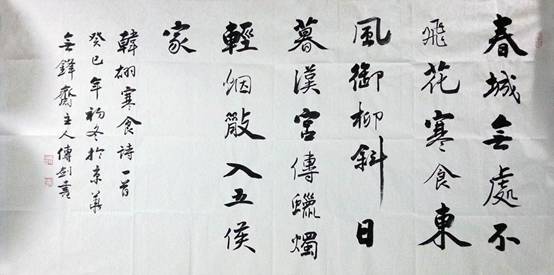 春城無處不
飛花寒食東
風御柳斜日
暮漢宮傳蠟燭
輕烟散入五侯
家
韓翃寒食詩一首
癸巳年初冬於京華
無鋒齋主人傅剑書